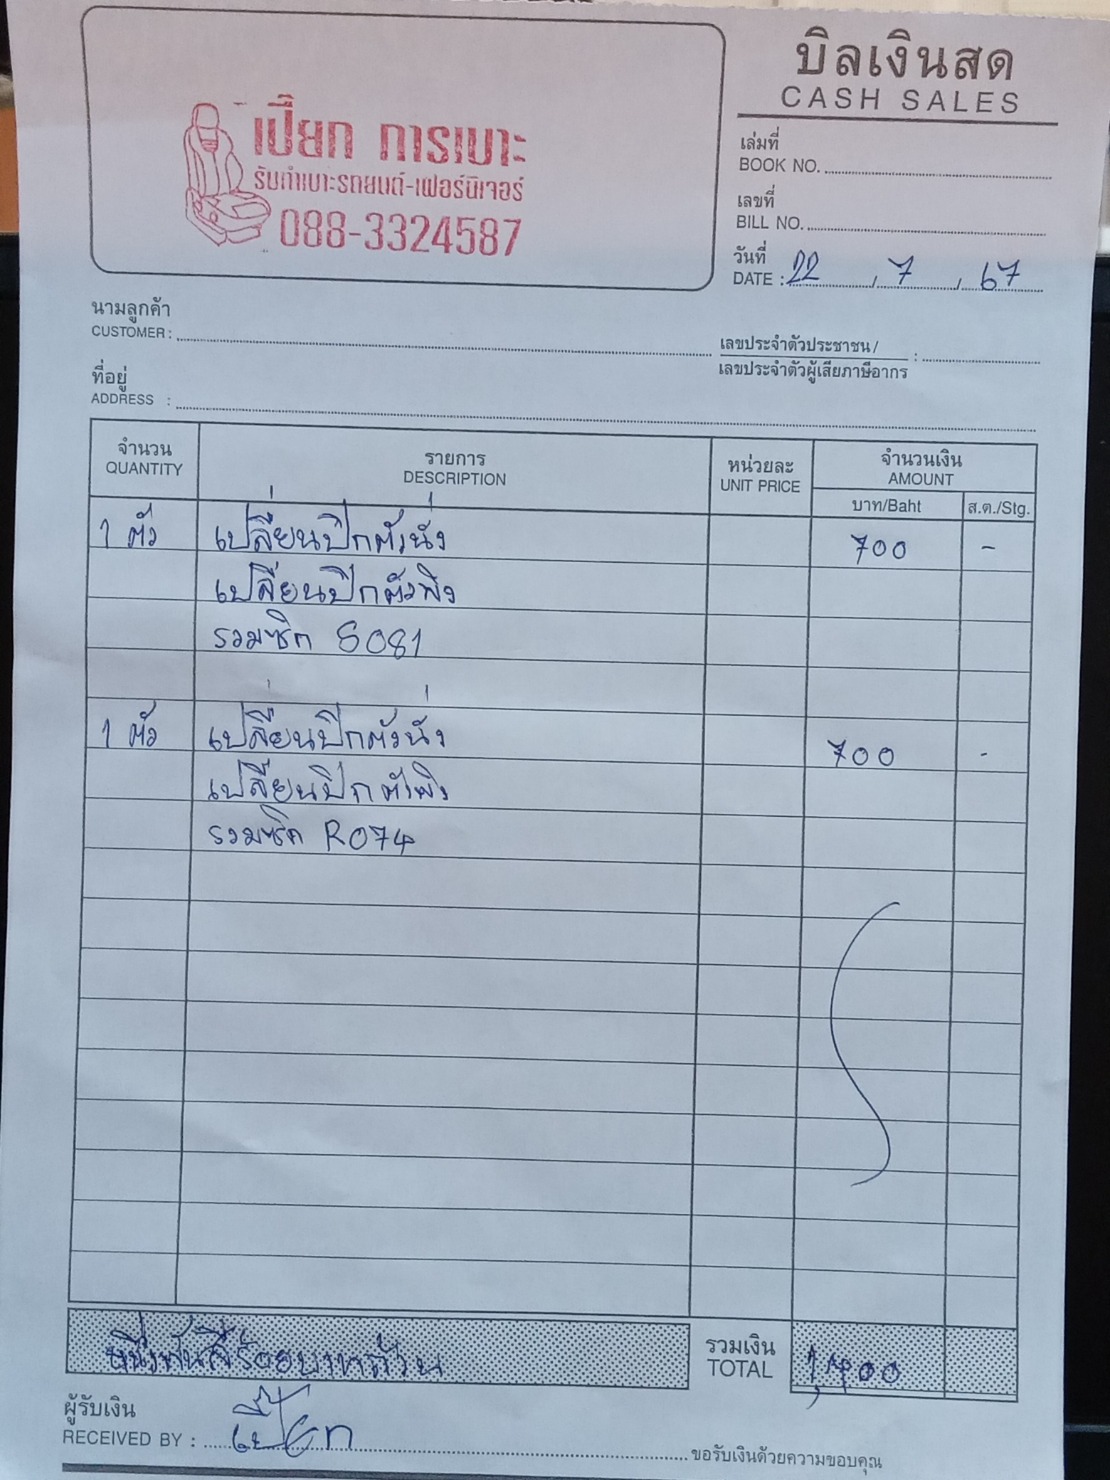 บิลเงินสด
CASH SALES
เปี๊ยก การเบาะ
รับทำเบาะรถยนต์-เฟอร์นิเจอร์
088-3324587
เล่มที่
BOOK NO.
เลขที่
BILL NO.
วันที่
DATE : 22 / 7 / 67
นามลูกค้า
CUSTOMER :
เลขประจำตัวประชาชน /
เลขประจำตัวผู้เสียภาษีอากร :
ที่อยู่
ADDRESS :
จำนวน รายการ หน่วยละ จำนวนเงิน
QUANTITY DESCRIPTION UNIT PRICE AMOUNT
บาท/Baht ส.ต./Stg.
1 ตัว เปลี่ยนปีกตัวนั่ง 700 -
เปลี่ยนปีกตัวพิง
รวมซิก S081
1 ตัว เปลี่ยนปีกตัวนั่ง 700 -
เปลี่ยนปีกตัวพิง
รวมซิก R074
หนึ่งพันสี่ร้อยบาทถ้วน
รวมเงิน
TOTAL 1,400
ผู้รับเงิน
RECEIVED BY : เปี๊ยก
ขอรับเงินด้วยความขอบคุณ